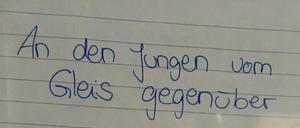 An den Jungen vom
Gleis gegenüber